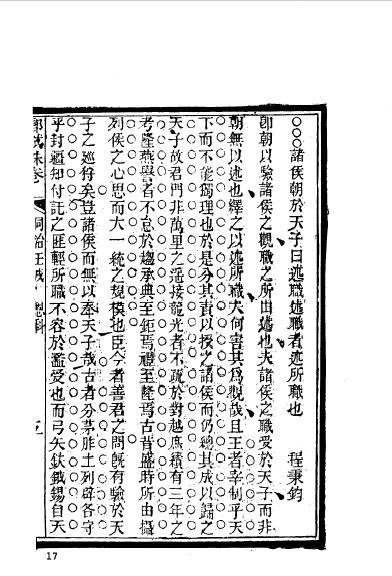 諸侯朝於天子曰述職述職者述所職也 程秉鈞
即朝以驗諸侯之觀職之所由述也夫諸侯之職受於天子而非
朝無以述也繹之以述所職夫何害其為觀哉且王者宰制乎天
下而不能獨理也於是分其責以授之諸侯而仍總其成以歸之
天子故君門非萬里之遙接龍光者不疏於對越庶績有三年之
考隆燕譽者不怠於趨承典至鉅焉禮至隆焉古昔盛時所由攝
列侯之心思而大一統之規模也臣今者善君之問既有驗於天
子之巡狩矣豈諸侯而無以奉天子哉古者分茅胙土列辟各守
乎封疆知付託之匪輕所職不容於濫受也而弓矢鈇鉞錫自天
同治壬戌
17